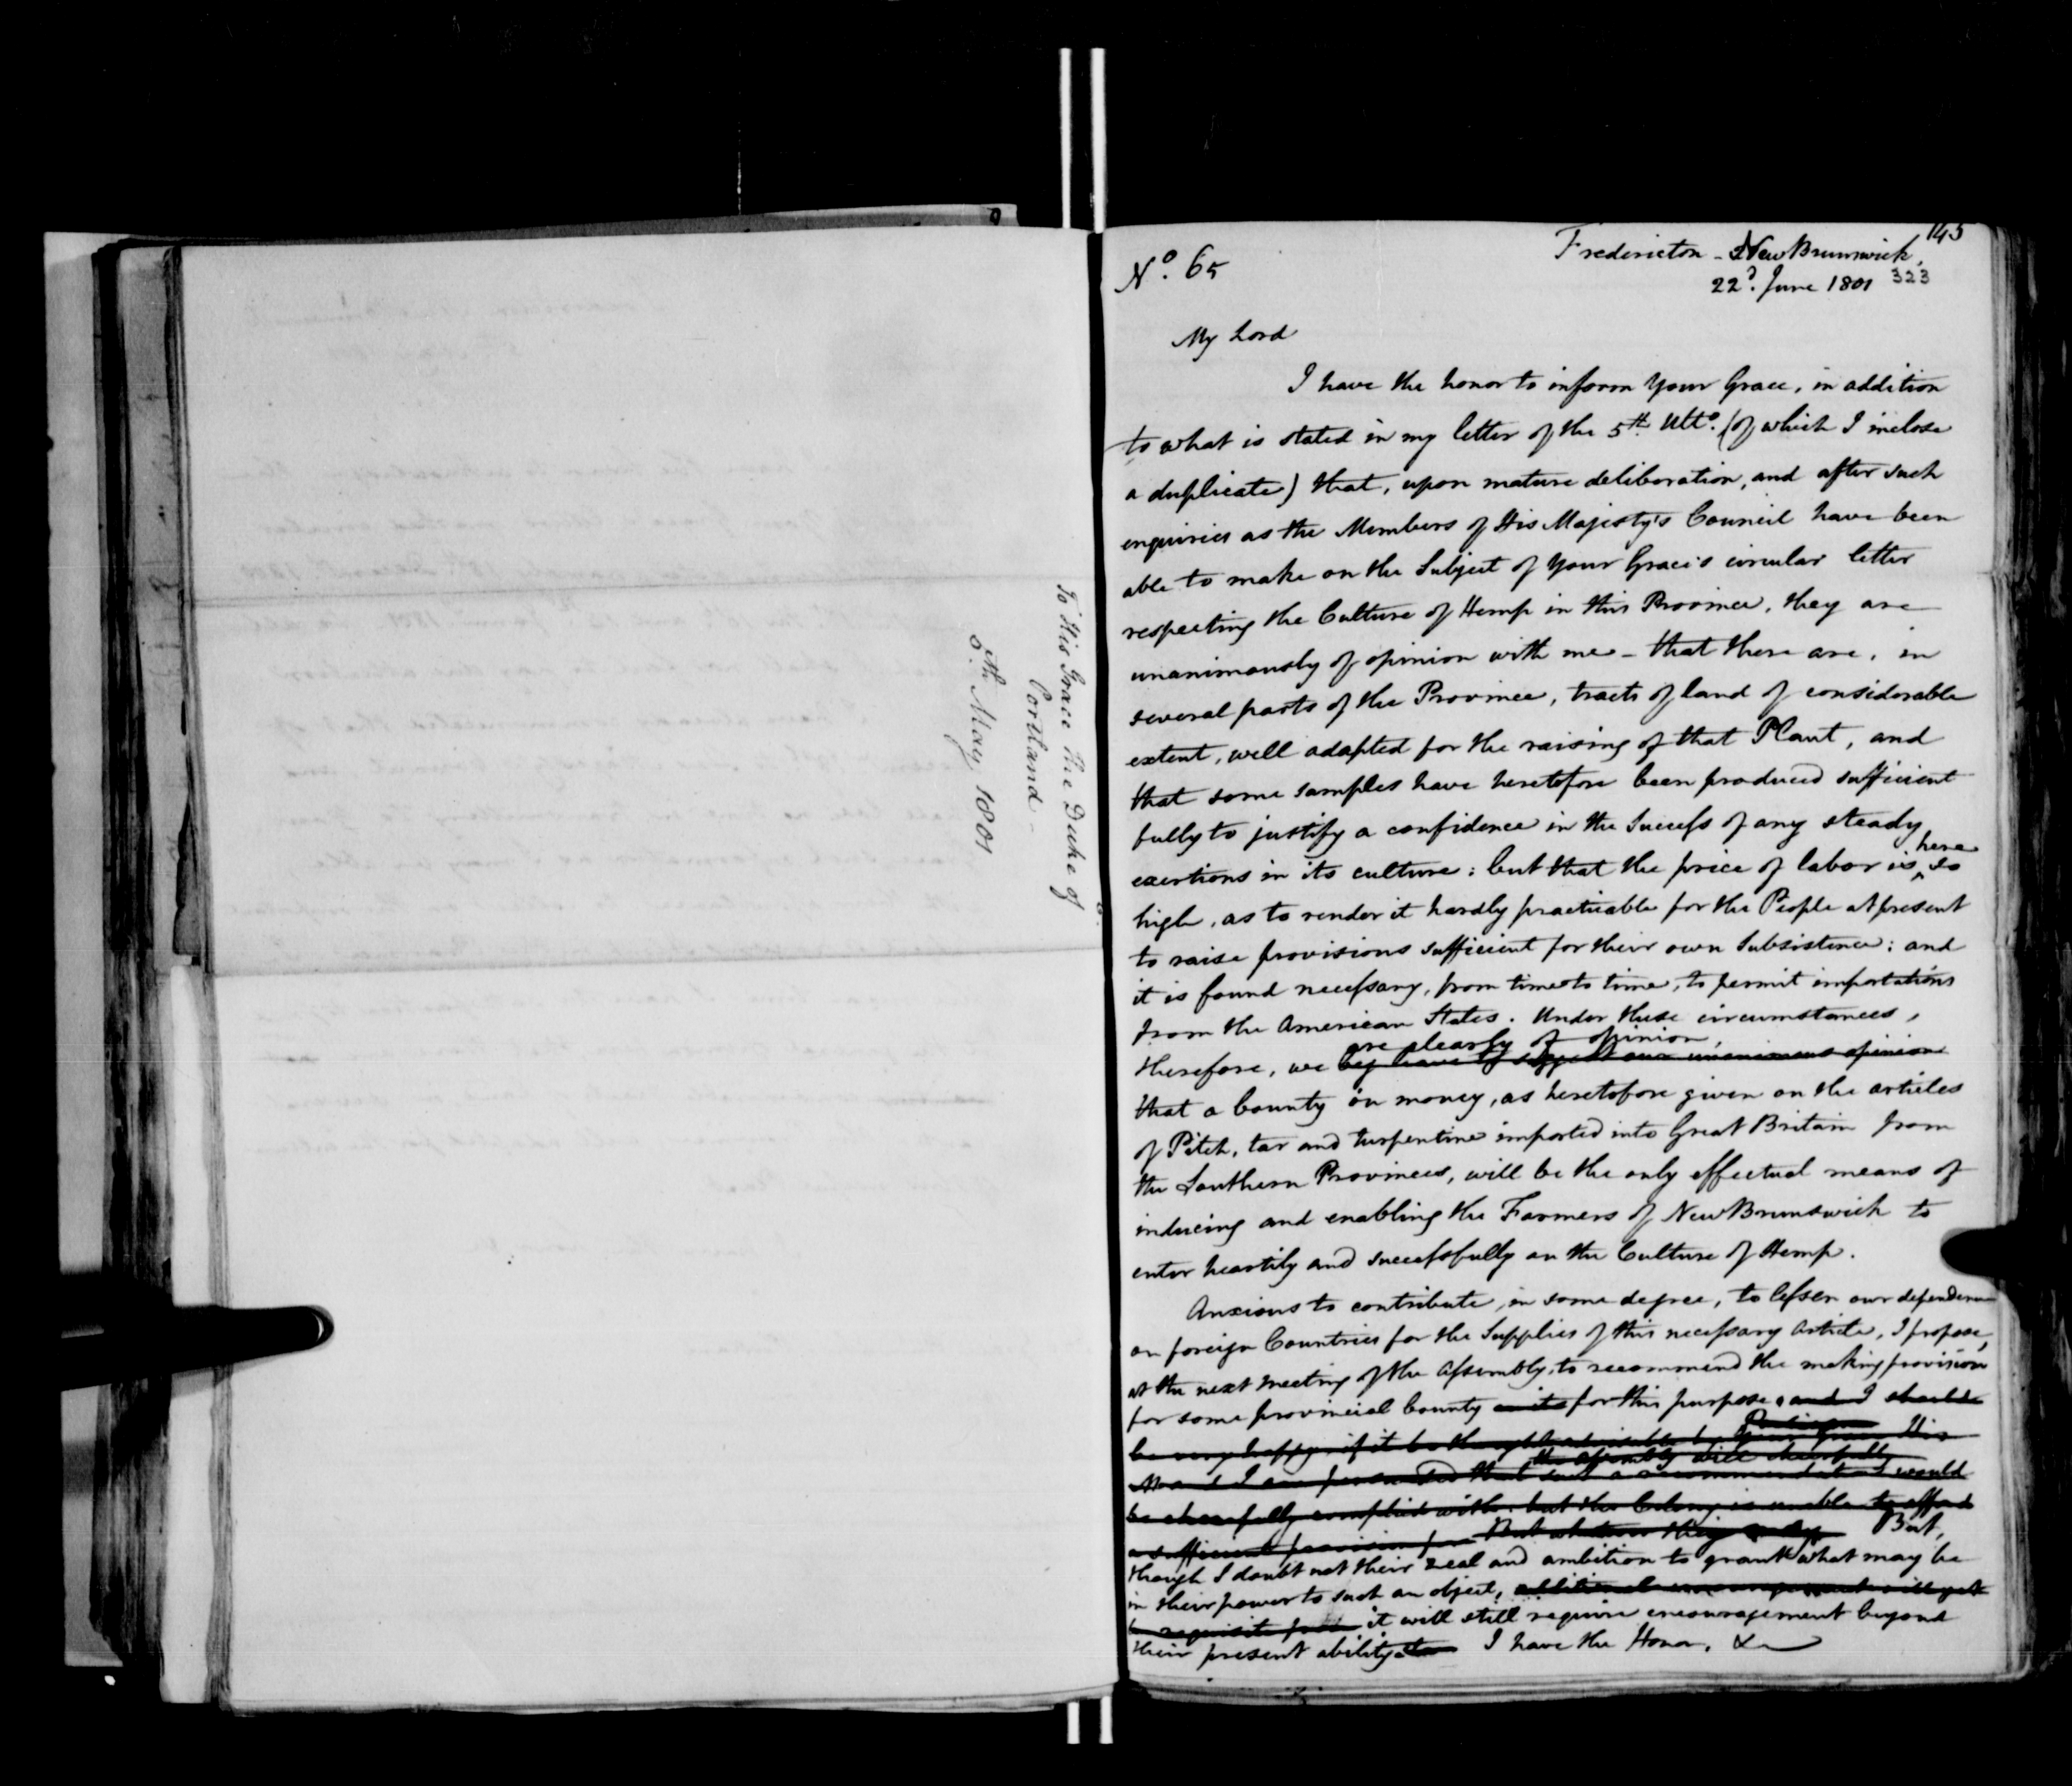 To His Grace The Duke of
Portland
5th. May, 1801
145
No. 65
Fredericton - New Brunswick,
22d. June 1801 323
My Lord
I have the honor to inform Your Grace, in addition
to what is stated in my letter of the 5th. Ulto. (of which I inclose
a duplicate) that, upon mature deliberation, and after such
enquiries as the Members of His Majesty's Council have been
able to make on the Subject of Your Grace's circular letter
respecting the Culture of Hemp in this Province, they are
unanimously of opinion with me - that there are, in
several parts of the Province, tracts of land of considerable
extent, well adapted for the raising of that Plant, and
that some samples have heretofore been produced sufficient
fully to justify a confidence in the Success of any steady
exertions in its culture: but that the price of labor is here so
high, as to render it hardly practicable for the People at present
to raise provisions sufficient for their own Subsistence; and
it is found necessary, from time to time, to permit importations
from the American States. Under these circumstances,
are clearly of opinion,
therefore, we beg leave to suggest our unanimous opinion
that a bounty in money, as heretofore given on the articles
of Pitch, tar and turpentine imported into Great Britain from
the Southern Provinces, will be the only effectual means of
inducing and enabling the Farmers of New Brunswick to
enter heartily and successfully on the Culture of Hemp.
Anxious to contribute, in some degree, to lessen our dependence
on foreign Countries for the Supplies of this necessary Article, I propose,
at the next meeting of the Assembly, to recommend the making provision
for some provincial bounty for this purpose, and I should
be very happy if it be thought advisable by Your Grace
the assembly will cheerfully
and I am persuaded that such a recommendation would
be cheerfully complied with: but the Colony is unable to afford
a sufficient provision for But whatever they But,
though I doubt not their zeal and ambition to grant what may be
in their power to such an object, additional encouragement will yet
be requisite it will still require encouragement beyond
their present ability. I have the Honor, &c